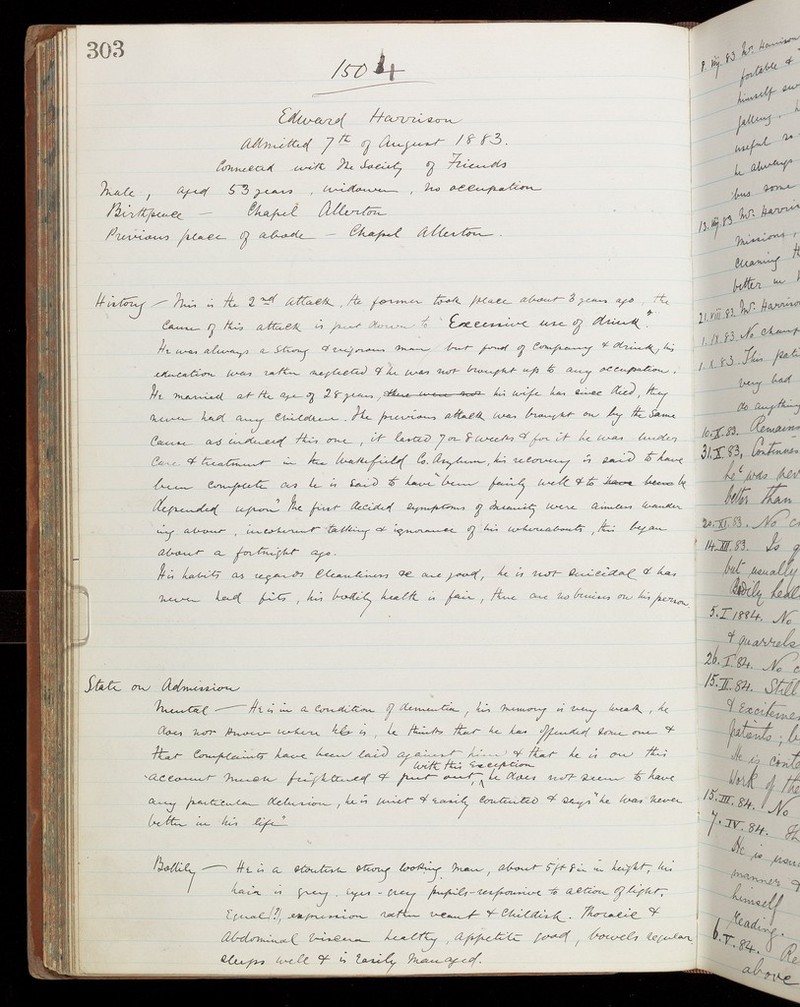 303
1504
Edward Harrison
Admitted 7th of August 1883.
Connected with The Society of Friends
Male, aged 53 years, widower, no occupation
Birthplace — Chapel Allerton
Previous place of abode — Chapel Allerton.
History — This is the 2nd attack, the former took place about 3 years ago, the
cause of this attack is put down to "Excessive use of drink".
He was always a strong & vigorous man, but fond of Company & drink, his
education was rather neglected & he was not brought up to any occupation.
He married at the age of 28 years, there were not his wife has since died, they
never had any children. The previous attack was brought on by the same
cause as induced this one, it lasted 7 or 8 weeks & for it he was under
care & treatment in the Wakefield Co. Asylum, his recovery is said to have
been complete as he is said to have been fairly well & to have been be
depended upon" The first decided symptoms of Insanity were aimless wander
ing about, incoherent talking & ignorance of his whereabouts, this began
about a fortnight ago.
His habits as regards cleanliness &c are good, he is not suicidal & has
never had fits, his bodily health is fair, there are no bruises on his person.
State on Admission
Mental — He is in a condition of dementia, his memory is very weak, he
does not know where he is, he thinks that he has offended some one &
that complaints have been laid against him & that he is on this
with this exception
account much frightened & put out, he does not seem to have
any particular delusion, he is quiet & easily contented & says "he was never
better in his life"
Bodily — He is a stoutish strong looking man, about 5 ft 8 in in height, his
hair is grey, eyes - grey pupils - responsive to action of light,
Equal (?), expression rather vacant & childish. Thoracic &
Abdominal viscera healthy, appetite good, bowels regular,
sleeps well & is easily managed.
8. Aug. 83 Mr. Harrison
fortable &
himself
useful
he always
some
13. Aug. 83 Mr. Harris
missions,
cleaning
better in
21.VIII.83. Mr. Harriso
1.IX.83. No chang
1.X.83. This pati
very bad
do anything
10.X.83. Remains
31.X.83, Continues
he was nev
better than
20.XI.83. No c
14.XII.83. Is g
but usually
Bodily heal
5.I.1884. No
& quarrels
26.I.84. No c
15.II.84. Still
& Exciteme
patients; b
He is conte
Work of the
15.III.84. No
7.IV.84. Th
He is usua
manner &
himself
reading.
6.V.84. Re
above